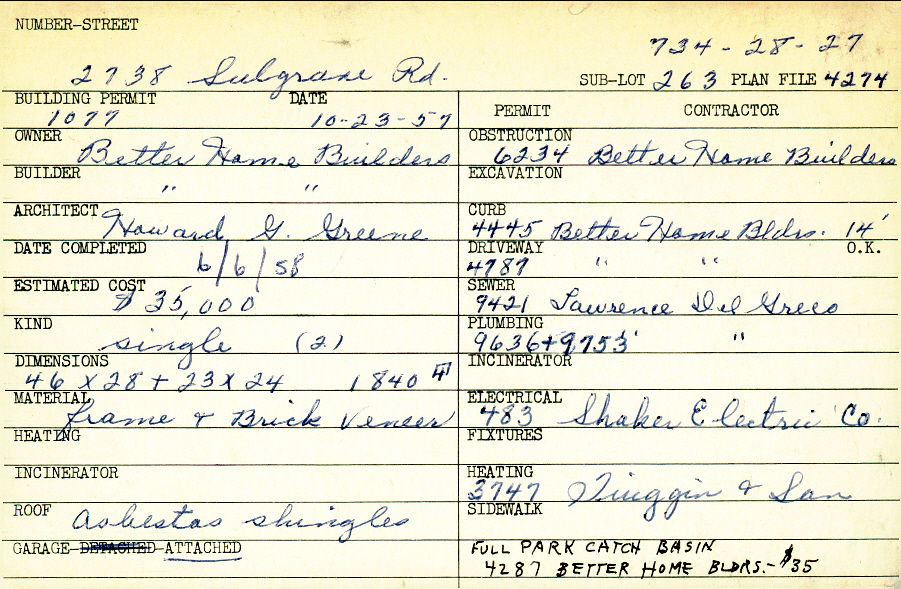 NUMBER-STREET
734-28-27
2738 Subgrane Rd.
SUB-LOT 263 PLAN FILE 4274
BUILDING PERMIT DATE
1077 10-23-57
PERMIT CONTRACTOR
OWNER
Better Home Builders
OBSTRUCTION
6234 Better Home Builders
BUILDER
" "
EXCAVATION
ARCHITECT Howard G. Greene
CURB
4445 Better Home Bldrs. 14'
DATE COMPLETED
6/6/58
DRIVEWAY O.K.
4787 " "
ESTIMATED COST
$ 35,000
SEWER
9421 Lawrence Del Greco
KIND
single (2)
PLUMBING
9636+9753 "
DIMENSIONS
46 x 28 + 23 x 24 1840
INCINERATOR
MATERIAL
frame & Brick Veneer
ELECTRICAL
483 Shaker Electric Co.
HEATING
FIXTURES
INCINERATOR
HEATING
3747 & Son
ROOF asbestos shingles
SIDEWALK
GARAGE-DETACHED-ATTACHED
FULL PARK CATCH BASIN
4287 BETTER HOME BLDRS.-$35